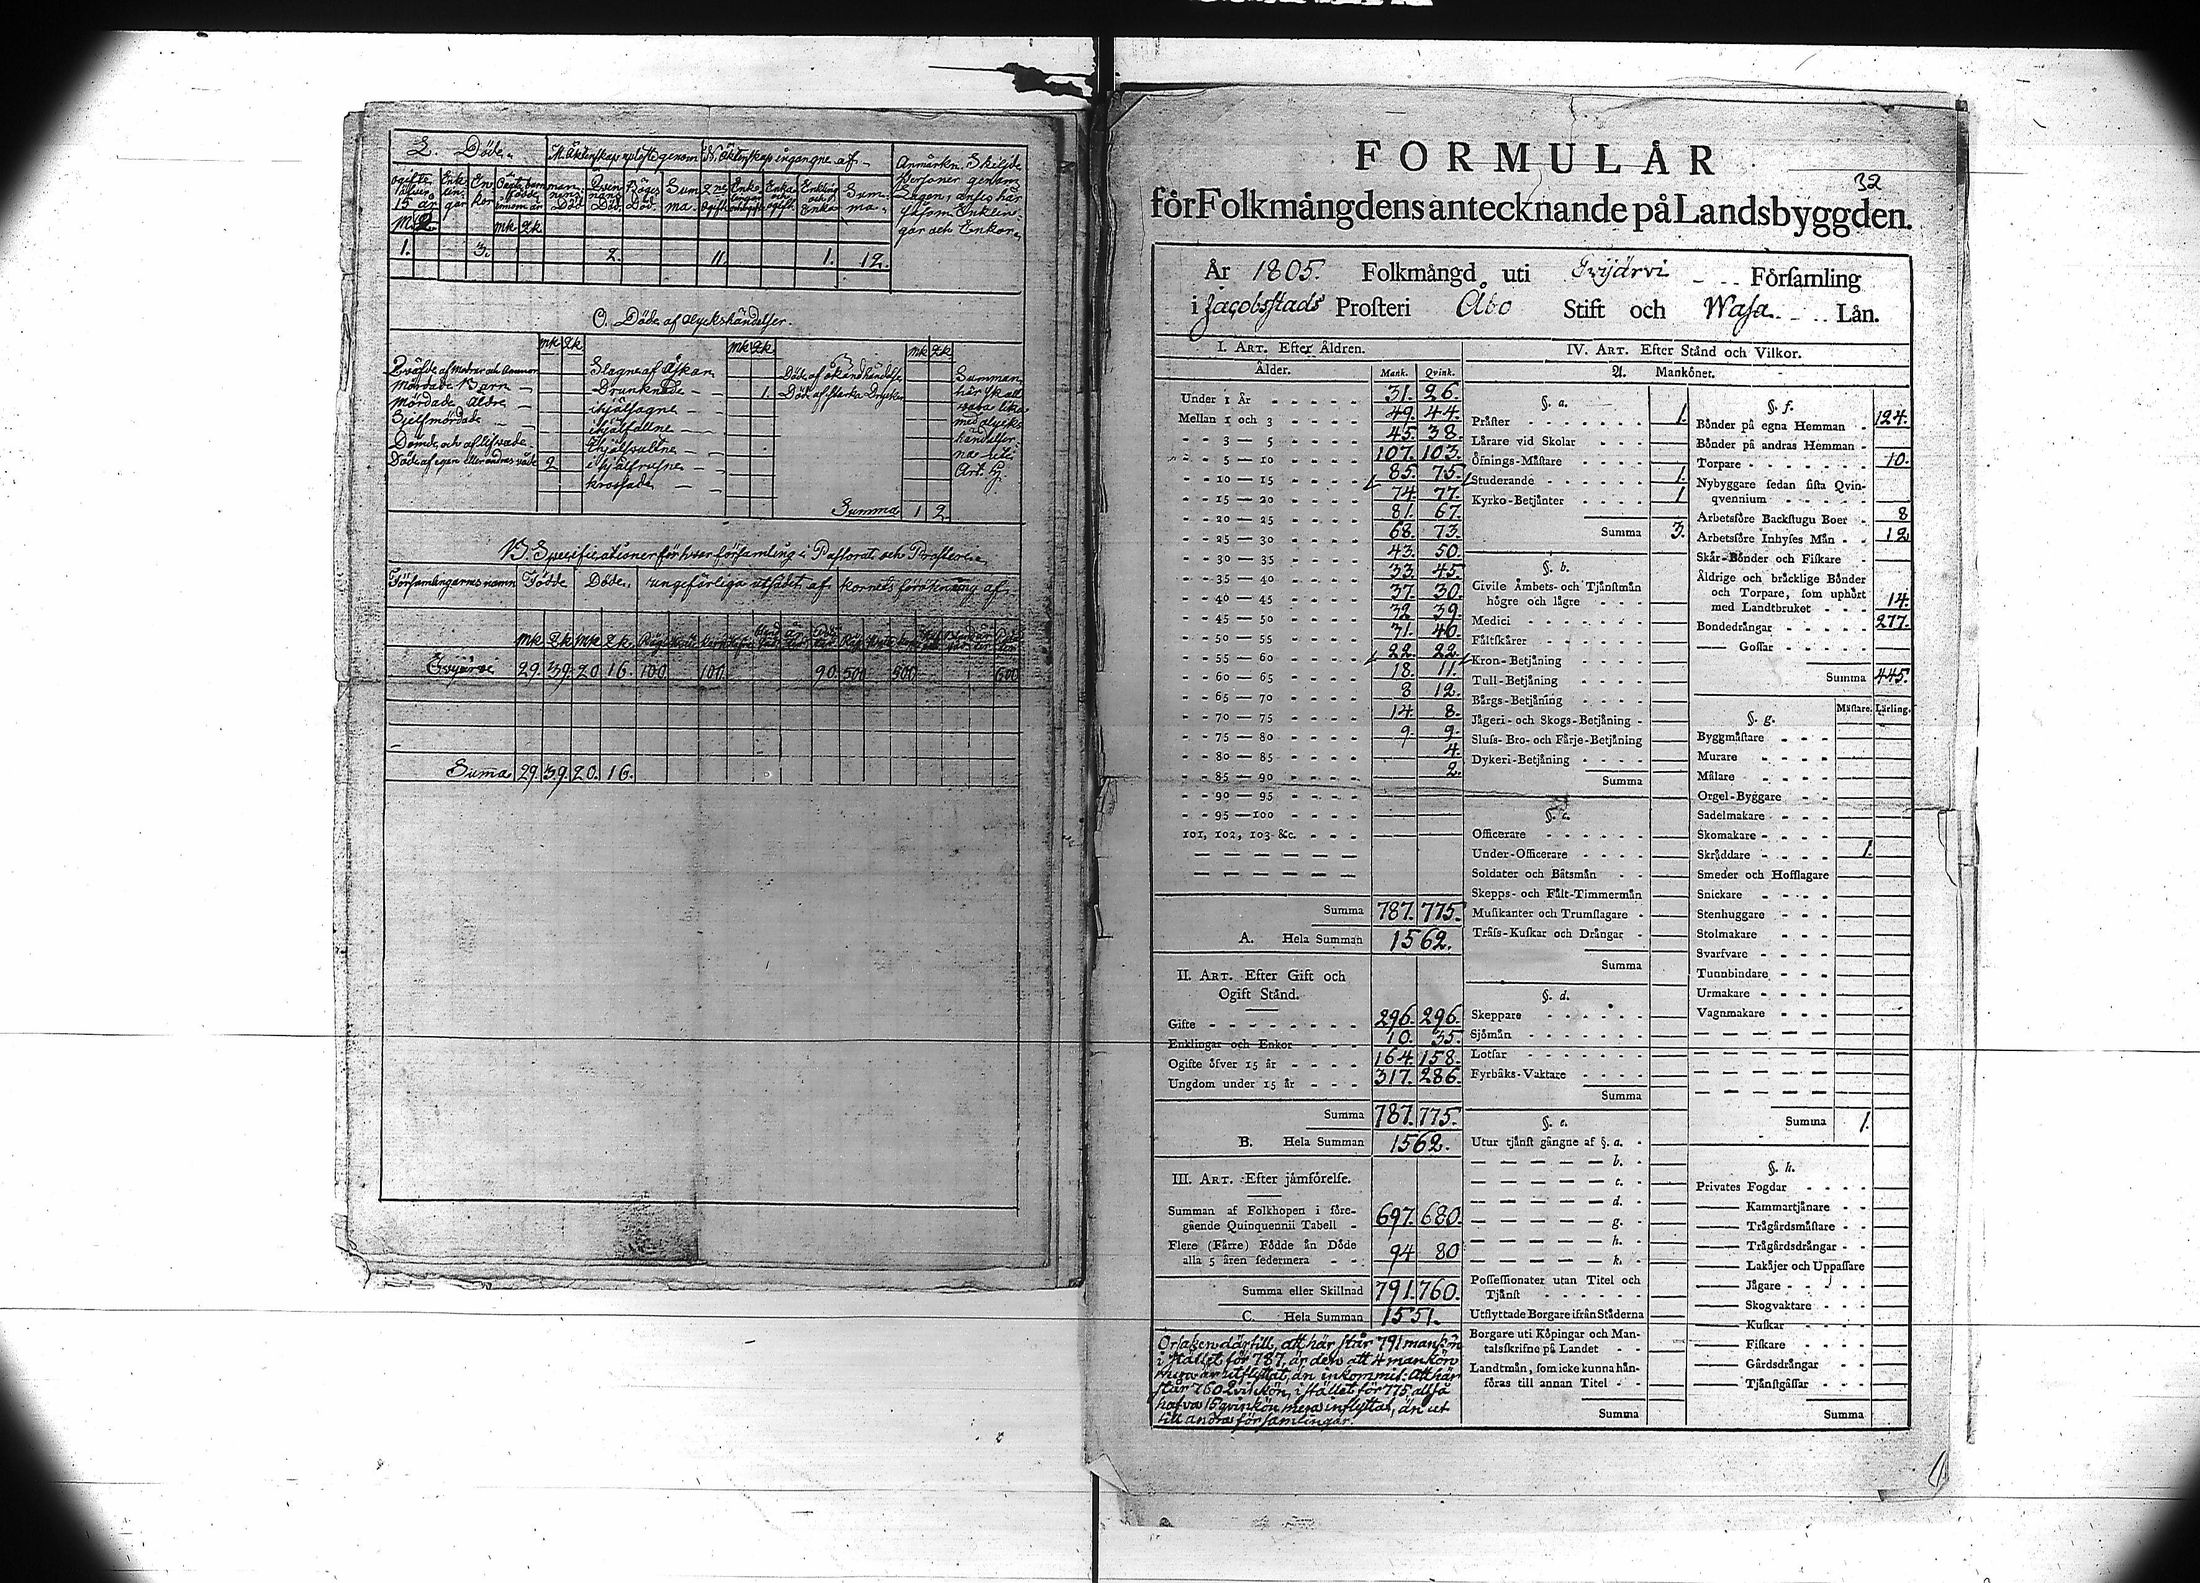 L. Döde.
M. Äktenskap uplöste genom
N. Äktenskap ingångne af
Anmärkn. Skilgde
Personer genom
Lagen, anses här
såsom Enklin-
gar och Enkor.
1. 3. 2. 11. 1. 12.
O. Döde af olyckshändelser.
mk qk mk qk mk qk
Qväfde af Mödrar och Ammor
Mördade Barn
Mördade Äldre
Sjelfmördade
Dömde och aflifvade
Döde af egen eller andras våde 2
Slagne af Åskan
Drunknade 1.
ihjälfrusne
krossade
Döde af okänd händelse
Döde af starka Drycker
Summa 1 2
Summan
här skall
vara lika
med olycks
händelser
na uti
Art. G.
Specificationer för hvar församling i Pastorat och Prosteri
Församlingarnes namn Födde Döde ungefärliga utsädet af kornets förökning af
mk qk mk qk
Evijärvi 29. 39. 20 16. 100 100 90. 500 900 600
Suma 29. 39. 20. 16.
FORMULÅR
32
för Folkmångdens antecknande på Landsbyggden.
År 1805. Folkmångd uti Evijärvi Församling
i Jacobsstads Prosteri Åbo Stift och Wasa Lån.
I. ART. Efter Åldren.
Ålder. Mank. Qvink.
Under 1 År 31. 26.
Mellan 1 och 3 49. 44.
3 — 5 45. 38.
5 — 10 107. 103.
10 — 15 85. 75.
15 — 20 74. 77.
20 — 25 81. 67.
25 — 30 68. 73.
30 — 35 43. 50.
35 — 40 33. 45.
40 — 45 37. 30.
45 — 50 32 39.
50 — 55 31. 40.
55 — 60 22. 22.
60 — 65 18. 11.
65 — 70 8 12.
70 — 75 14. 8.
75 — 80 9. 9.
80 — 85 4.
85 — 90 2.
90 — 95
95 — 100
101, 102, 103 &c.
Summa 787. 775.
A. Hela Summan 1562.
II. ART. Efter Gift och
Ogift Stånd.
Gifte 296. 296.
Enklingar och Enkor 10. 35.
Ogifte öfver 15 år 164. 158.
Ungdom under 15 år 317. 286.
Summa 787. 775.
B. Hela Summan 1562.
III. ART. Efter jämförelse.
Summan af Folkhopen i före-
gående Quinquennii Tabell 697. 680.
Flere (Färre) Födde än Döde
alla 5 åren sedermera 94 80
Summa eller Skillnad 791. 760.
C. Hela Summan 1551.
Orsaken därtill, att här står 791 mankön
i stället för 787, är den att 4 mankön
flera är utflyttat, än inkommit. Att här
står 760 Qvinkön, i stället för 775, altså
hafva 15 qvinkön mera inflyttat, än ut
till andra församlingar.
IV. ART. Efter Stånd och Vilkor.
A. Mankönet.
§. a.
Pråster 1.
Lårare vid Skolar
Öfnings-Måstare
Studerande 1.
Kyrko-Betjånter 1
Summa 3.
§. b.
Civile Åmbets- och Tjånstmån
högre och lågre
Medici
Fåltskårer
Kron-Betjåning
Tull-Betjåning
Bårgs-Betjåning
Jågeri- och Skogs-Betjåning
Sluss- Bro- och Fårje-Betjåning
Dykeri-Betjåning
Summa
§. c.
Officerare
Under-Officerare
Soldater och Båtsmån
Skepps- och Fålt-Timmermån
Musikanter och Trumslagare
Tråss-Kuskar och Drångar
Summa
§. d.
Skeppare
Sjömån
Lotsar
Fyrbåks-Vaktare
Summa
§. e.
Utur tjånst gångne af §. a.
b.
c.
d.
g.
h.
k.
Possessionater utan Titel och
Tjånst
Utflyttade Borgare ifrån Ståderna
Borgare uti Köpingar och Man-
talsskrifne på Landet
Landtmån, som icke kunna hån-
föras till annan Titel
Summa
§. f.
Bönder på egna Hemman 124.
Bönder på andras Hemman
Torpare 10.
Nybyggare sedan sista Qvin-
qvennium
Arbetsföre Backstugu Boer 8
Arbetsföre Inhyses Mån 12
Skår-Bönder och Fiskare
Åldrige och bråcklige Bönder
och Torpare, som uphört
med Landtbruket 14.
Bondedrångar 277.
— Gossar
Summa 445.
§. g. Måstare. Lärling.
Byggmåstare
Murare
Målare
Orgel-Byggare
Sadelmakare
Skomakare
Skråddare 1.
Smeder och Hofslagare
Snickare
Stenhuggare
Stolmakare
Svarfvare
Tunnbindare
Urmakare
Vagnmakare
Summa 1.
§. h.
Privates Fogdar
— Kammartjånare
— Trågårdsmåstare
— Trågårdsdrångar
— Lakåjer och Uppassare
— Jågare
— Skogvaktare
— Kuskar
— Fiskare
— Gårdsdrångar
— Tjånstgåssar
Summa